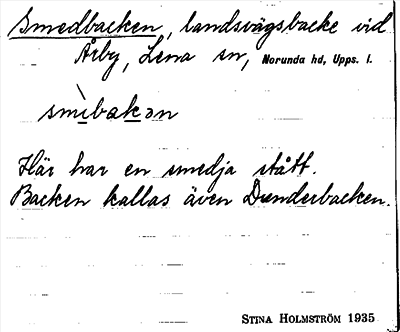 Smedbacken, landsvägsbacke vid
Årby, Lena sn, Norunda hd, Upps. l.
smìbakən
Här har en smedja stått.
Backen kallas även Dunderbacken.
STINA HOLMSTRÖM 1935